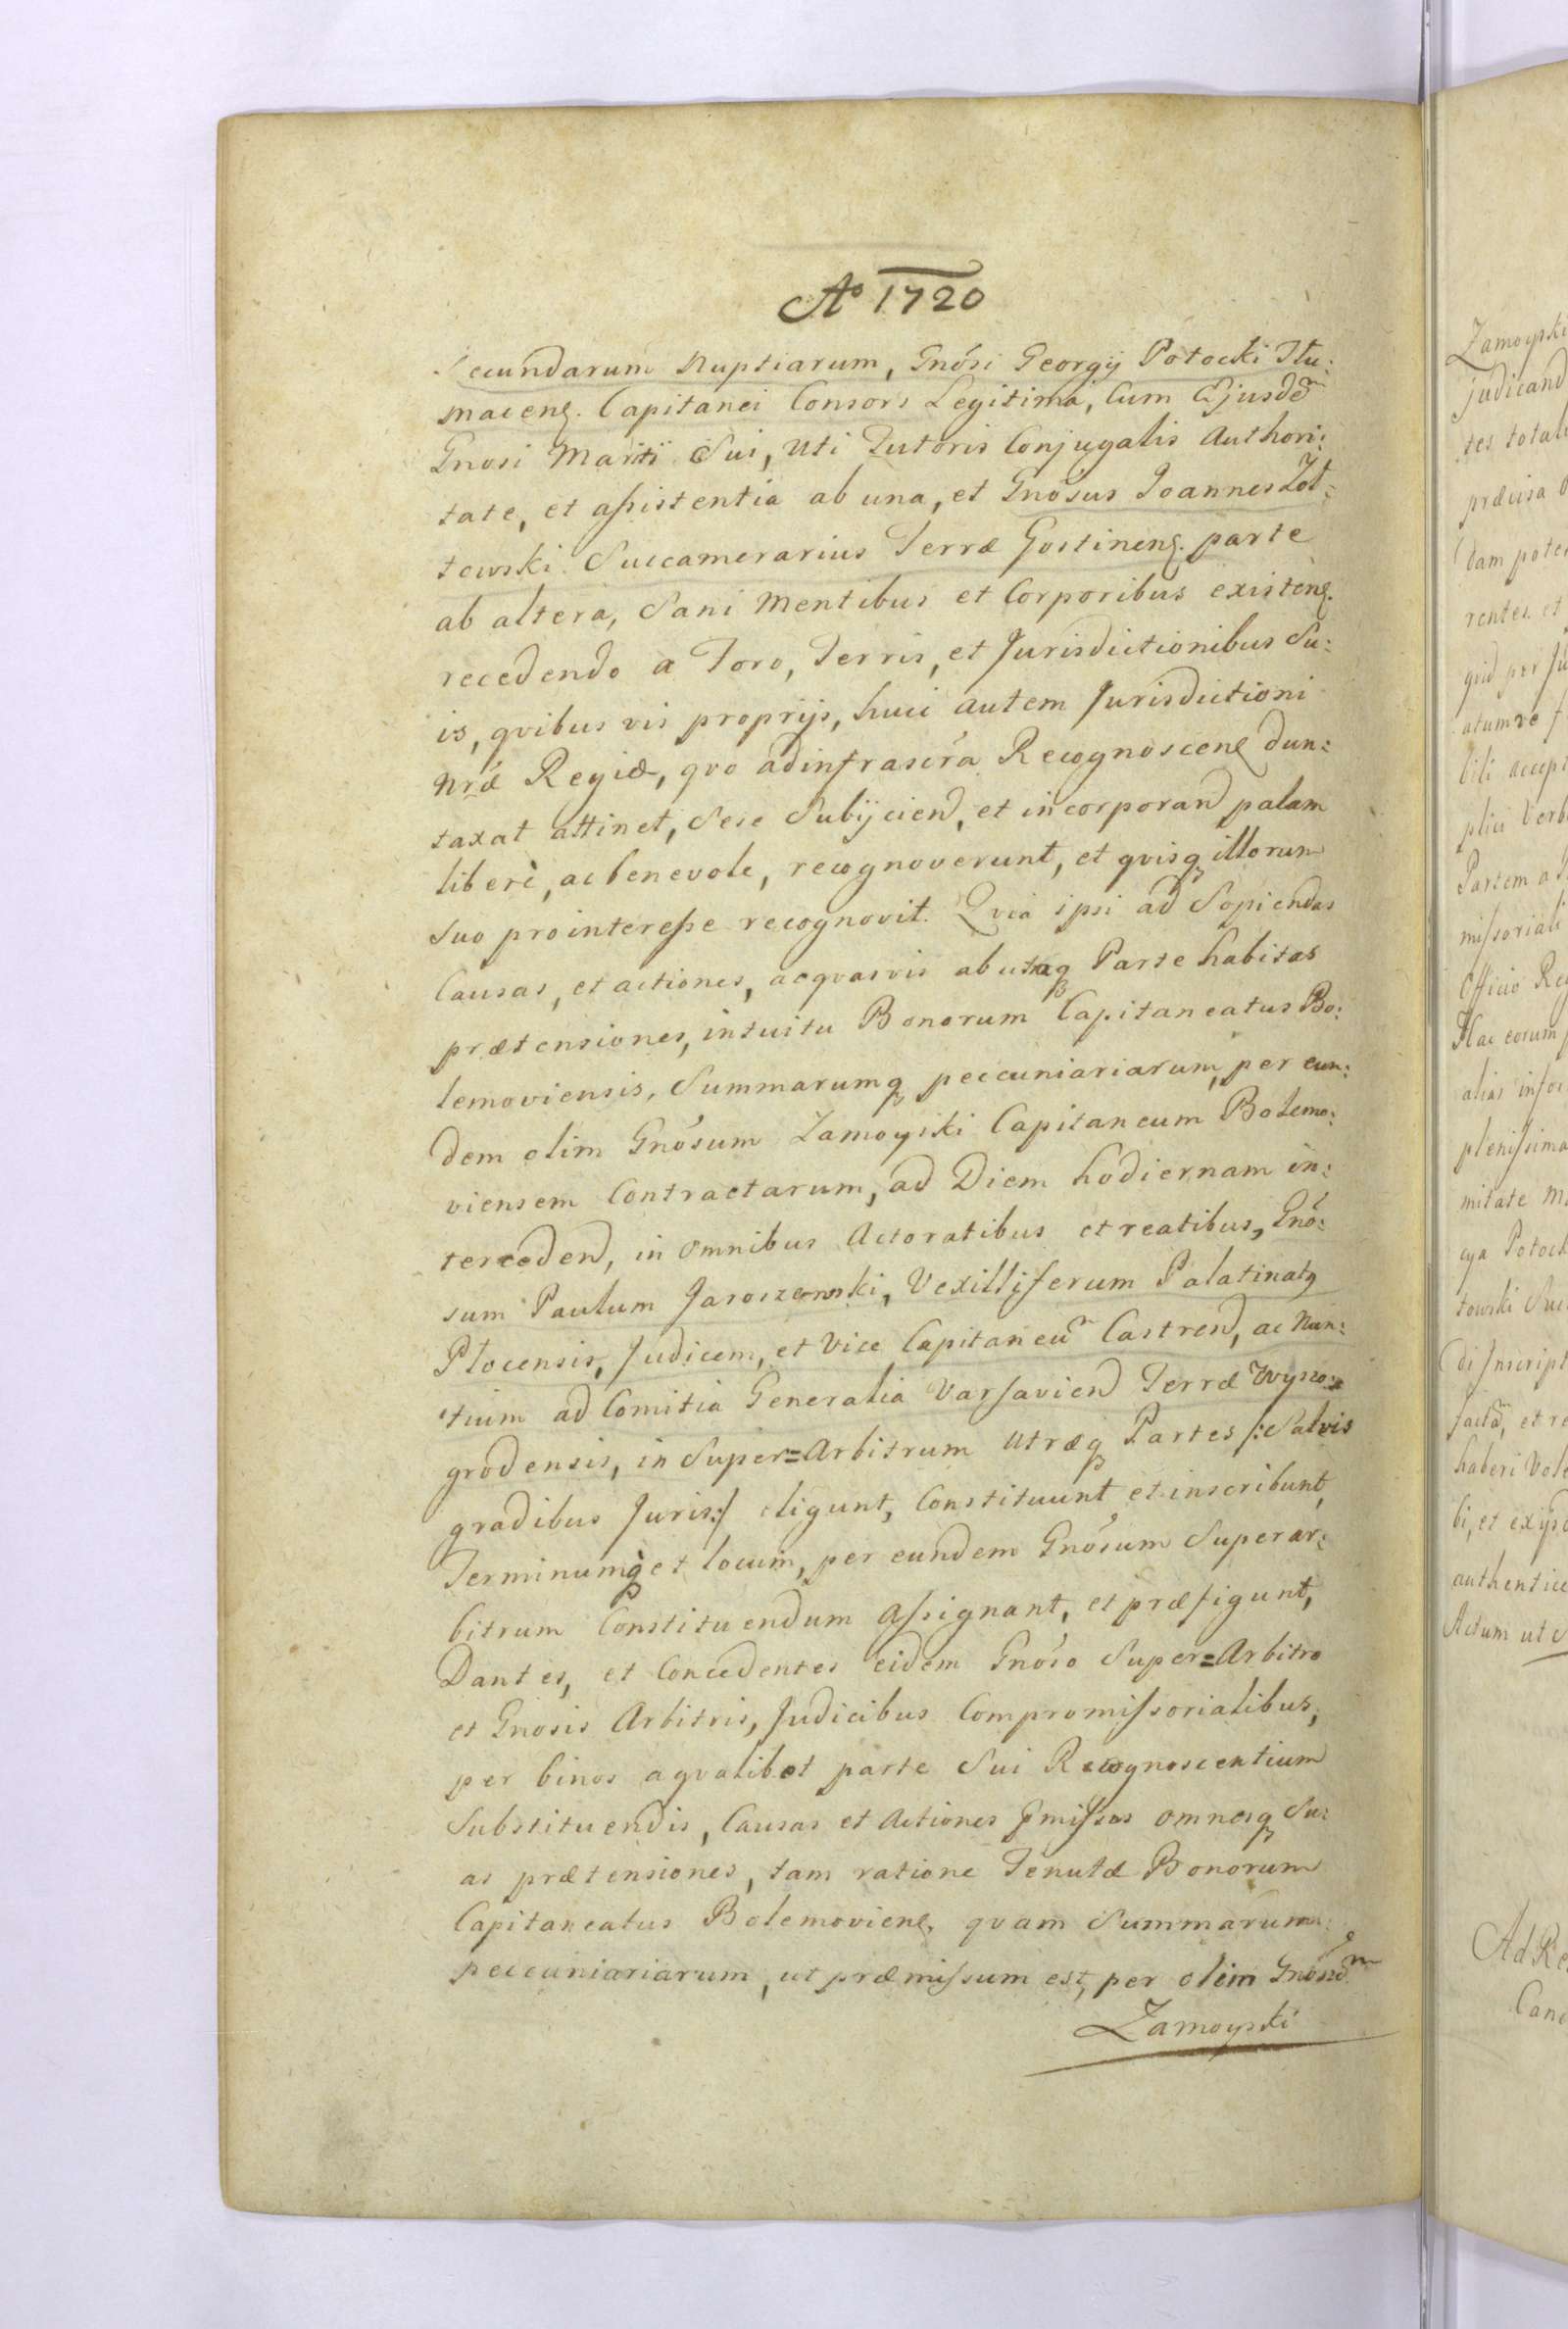 Aº 1720
Secundarum Nuptiarum, Gnósi Georgij Potocki Tłu:
macenẽ. Capitanei Consors Legitima, Cum Ejusdẽ
Gnosi Mariti Sui, uti Tutoris Conjugalis Authori:
tate, et assistentia ab una, et Gnósus Joannes Zoł:
towski Succamerarius Terræ Gostinenẽ. parte
ab altera, Sani Mentibus et Corporibus existenẽ.
recedendo a Foro, Terris, et Jurisdictionibus Su:
is, qvibus vis proprijs, huic autem Jurisdictioni
Nrǽ Regiæ, qvo ad infrascŕa Recognoscenẽ dun:
taxat attinet, Sese Subijciend, et incorporand palam
liberè, ac benevole, recognoverunt, et qvisq illorum
Suo pro interesse recognovit. Qvia ipsi ad Sopiendas
Causas, et actiones, ac qvasvis ab utraq Parte habitas
prætensiones, intuitu Bonorum Capitaneatus Bo:
lemoviensis, Summarumq peccuniariarum, per eun:
dem olim Gnósum Zamoyski Capitaneum Bolemo:
viensem Contractarum, ad Diem hodiernam in:
terceden̄d, in omnibus Actoratibus et reatibus, Gnó:
sum Paulum Jaroszewski, Vexilliferum Palatinatq
Plocensis, Judicem, et Vice Capitaneũ Castrend, ac Nun:
tium ad Comitia Generalia Varsaviend Terræ Wyszo:
grodensis, in Super=Arbitrum utræq Partes /: Salvis
gradibus Juris :/ eligunt, Constituunt et inscribunt,
Terminumq et locum, per eundem Gnósum Superar:
bitrum Constituendum assignant, et præfigunt,
Dantes, et Concedentes eidem Gnóso Super=Arbitro
et Gnosis Arbitris, Judicibus Compromissorialibus,
per binos a qvalibet parte Sui Recognoscentium
Substituendis, Causas et Actiones pmissas omnesq Su:
as prætensiones, tam ratione Tenutæ Bonorum
Capitaneatus Bolemovienẽ. qvam Summarum
peccuniariarum, ut præmissum est, per olim Gnósũm
Zamoyski
Zamoyski
judicand
tes total
præcisa
dam pote
rentes et
qvid per Ju
atumve
bili accept
plici Verb
Partem a
missoriali
Officio Reg
Hac eorum
alias
plenissima
mitate
Potock
towski Suc
di Inscript
factã, et re
haberi Vole
bi, et exijsd
authentice
Actum ut
Ad Re
Canc